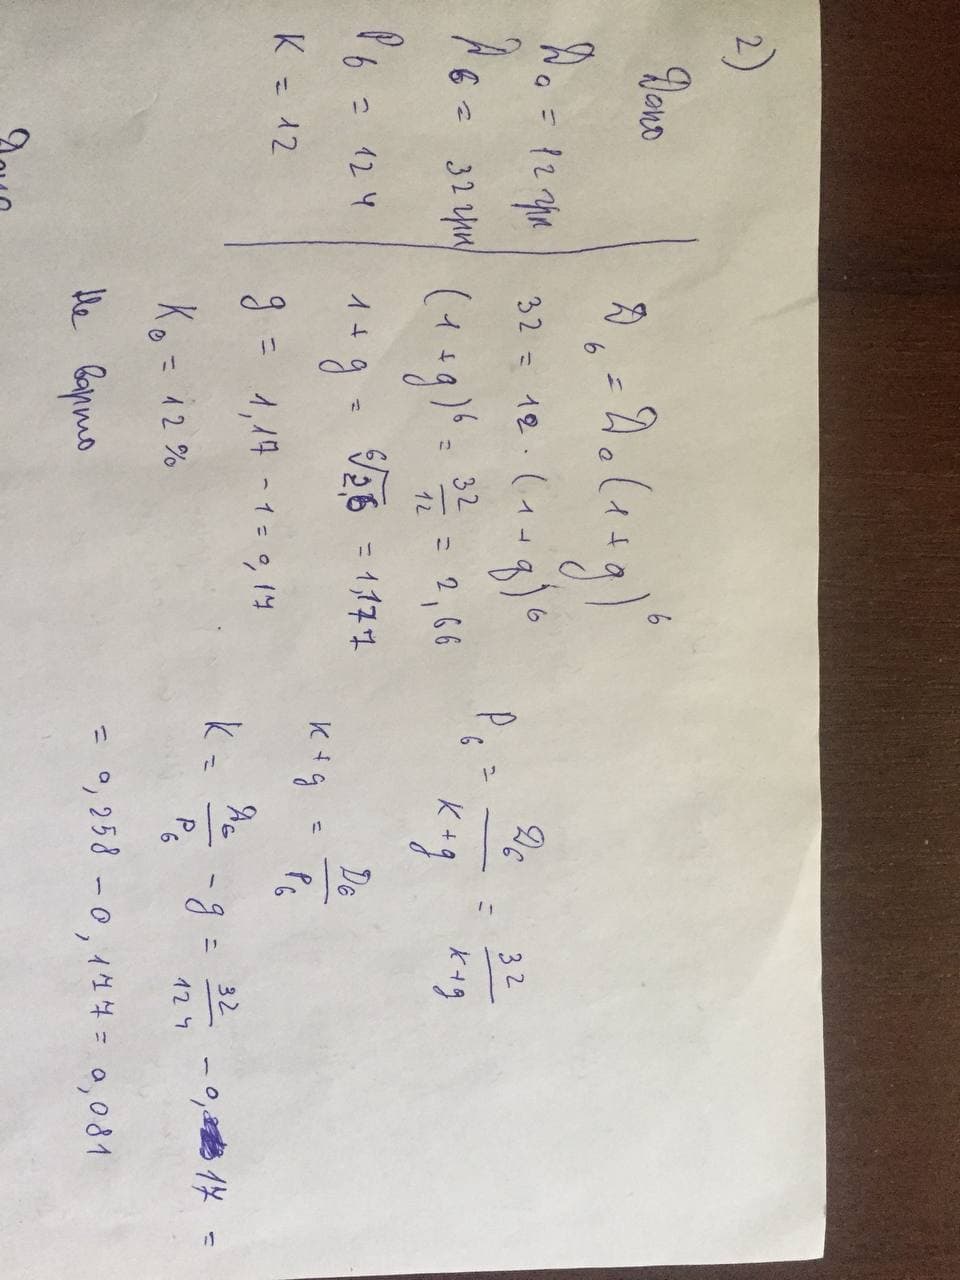 2)
Дано
Д₀ = 12 грн
Д₆ = 32 грн
P₆ = 124
K = 12
Д₆ = Д₀ (1 + g)⁶
32 = 12 · (1 + g)⁶
(1 + g)⁶ = 32/12 = 2,66
1 + g = ⁶√2,6 = 1,177
g = 1,17 - 1 = 0,17
K₀ = 12 %
Не варто
P₆ = Д₆/K+g = 32/K+g
K+g = D₆/P₆
K = Д₆/P₆ - g = 32/124 - 0,17 =
= 0,258 - 0,177 = 0,081